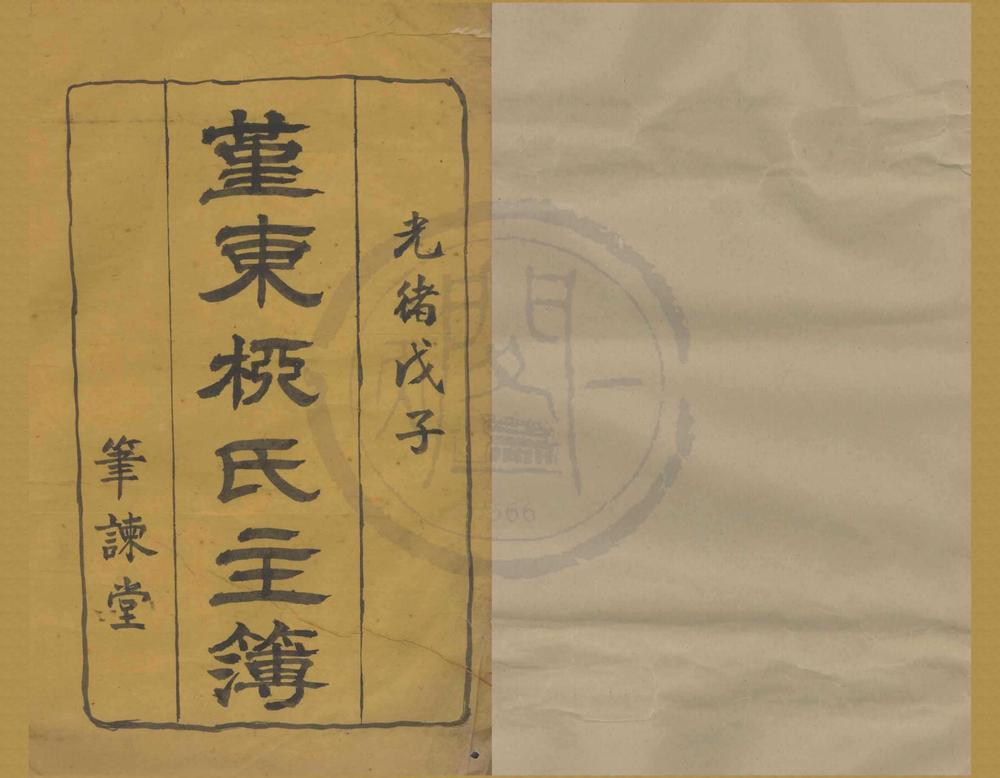 光緒戊子
堇東桺氏主簿
筆諫堂